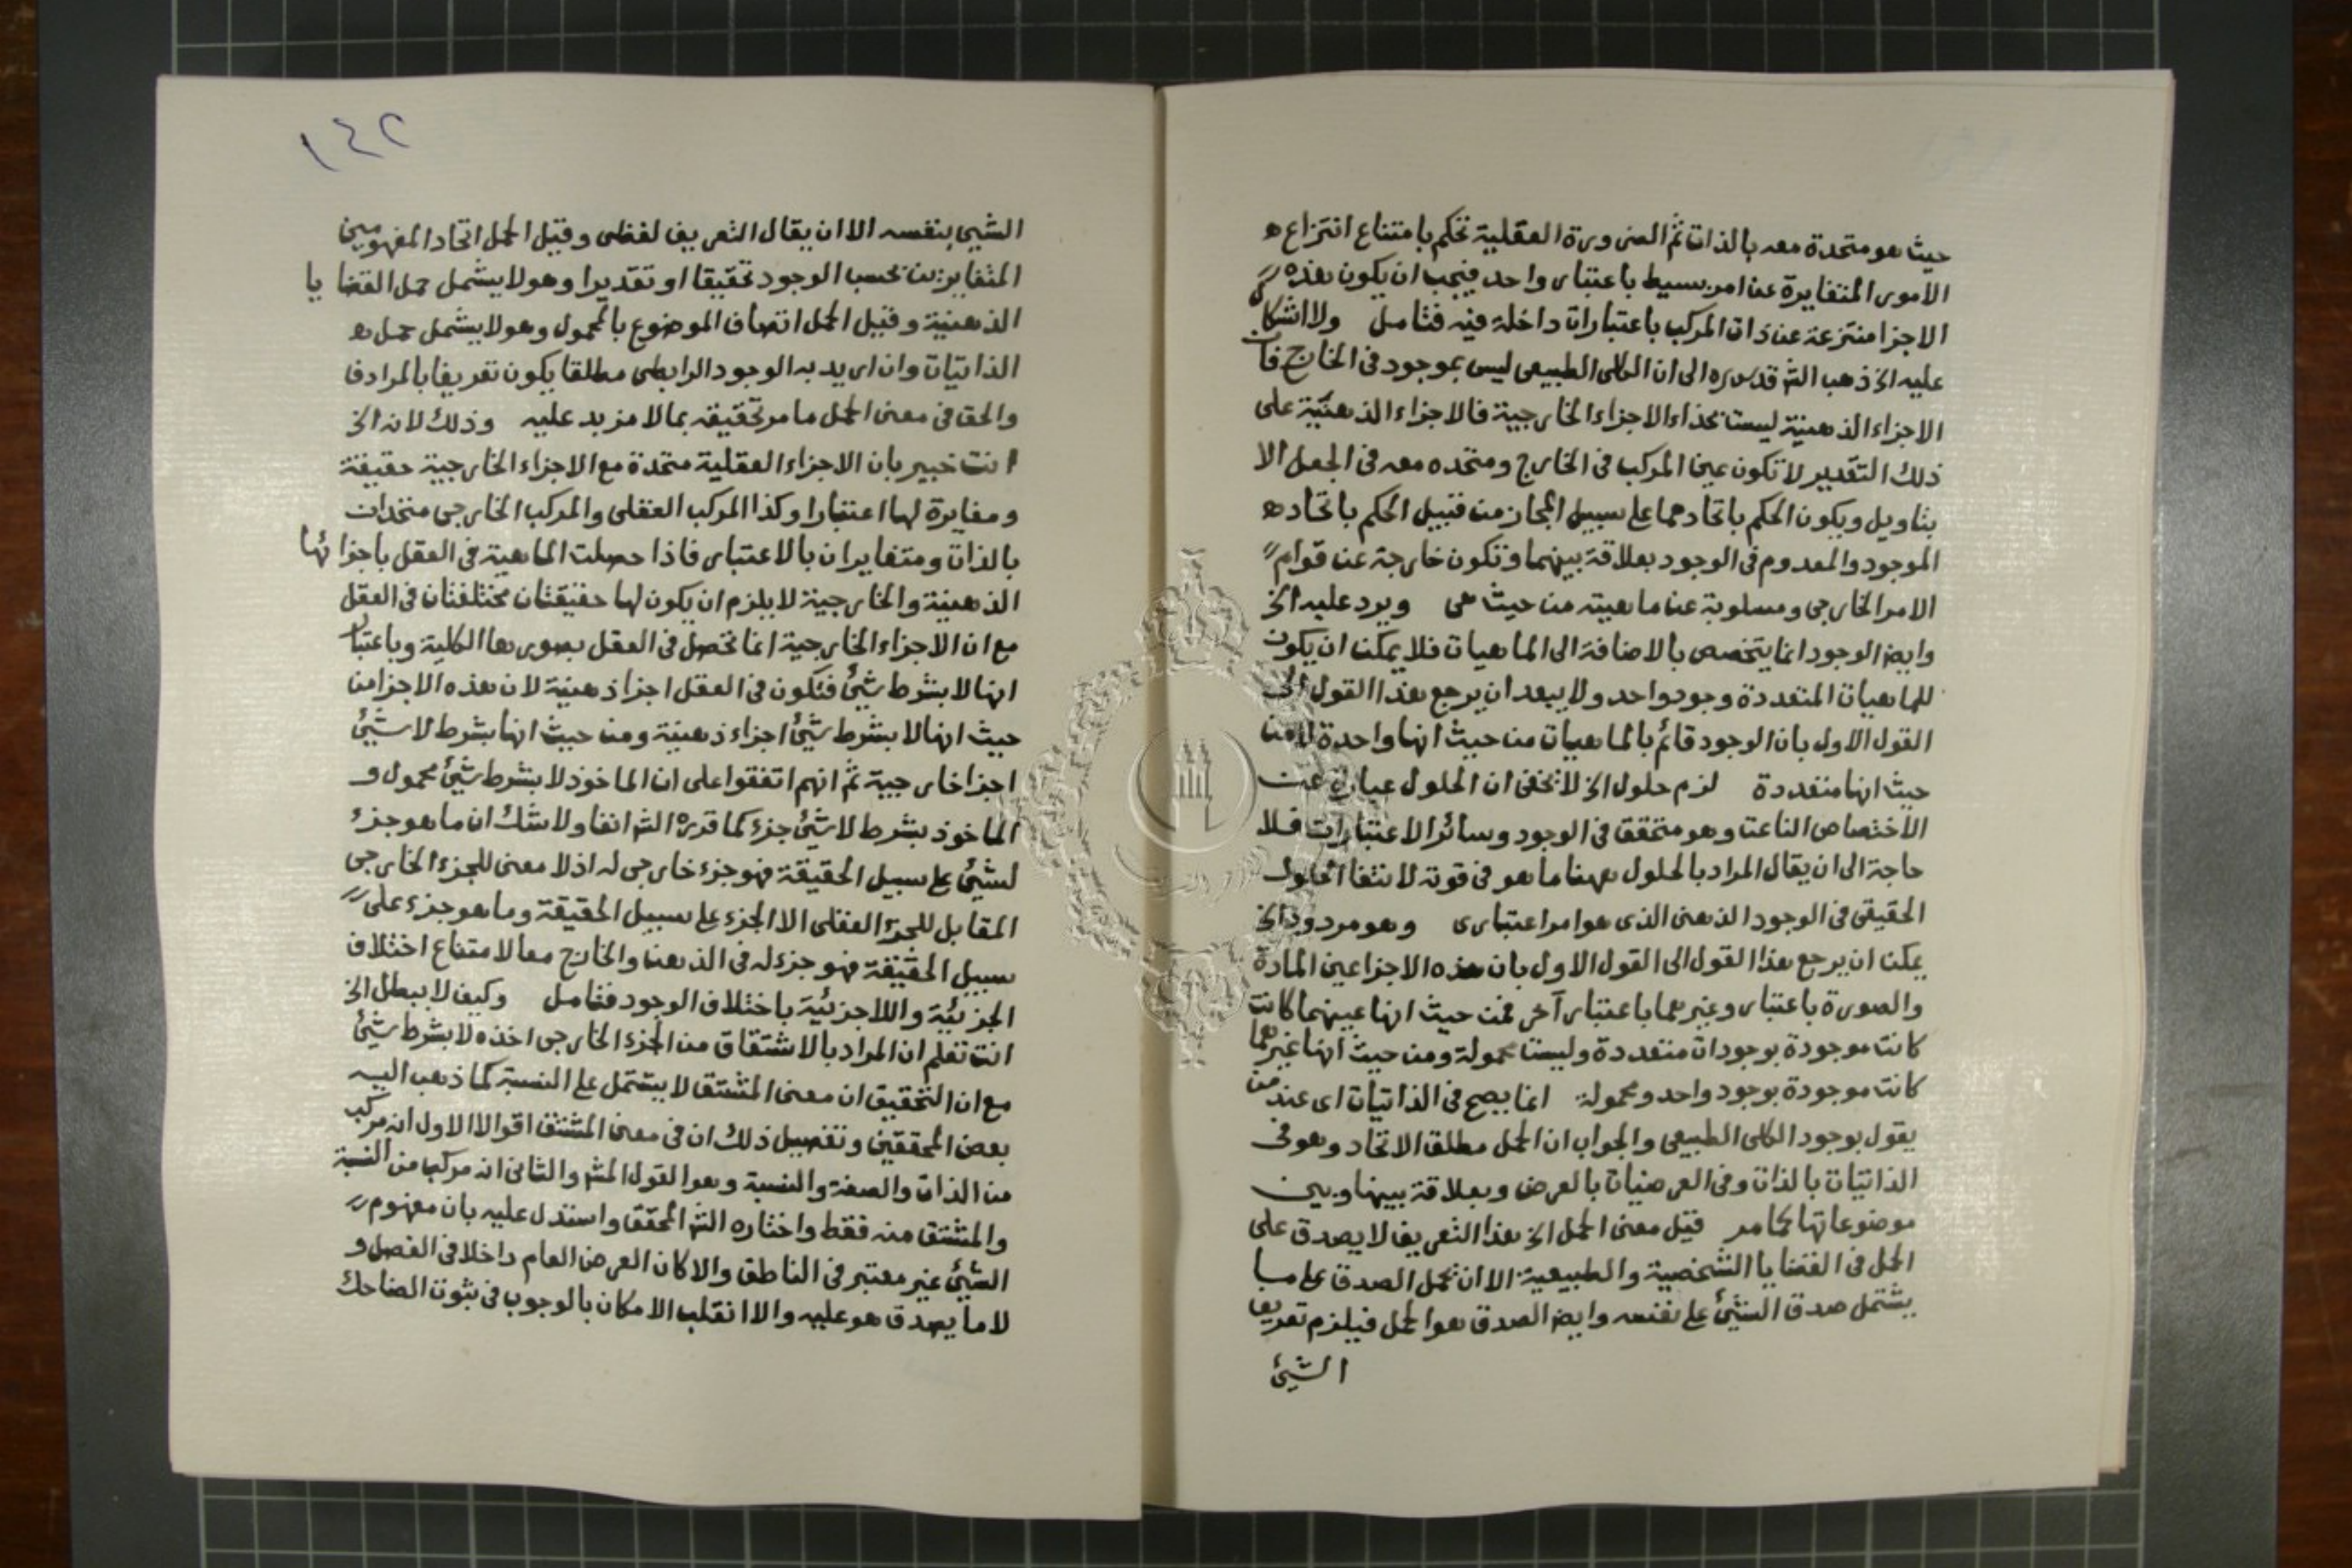 حيث هو متحدة معه بالذات ثم الضرورة العقلية تحكم بامتناع انتزاع ه
الامور المتغايرة عن امر بسيط باعتبار واحد فيجب ان يكون هذه
الاجزا منتزعة عن ذات المركب باعتبارات داخلة فيه فتامل ولا اشكال
عليه الخ ذهب الش قدس سره الى ان الكلى الطبيعى ليس بموجود فى الخارج فان
الاجزاء الذهنية ليست بحذاء الاجزاء الخارجية فالاجزاء الذهنية على
ذلك التقدير لا تكون عين المركب فى الخارج ومتحده معه فى الجعل الا
بتاويل ويكون الحكم باتحادهما على سبيل المجاز من قبيل الحكم باتحاد ه
الموجود والمعدوم فى الوجود بعلاقة بينهما وتكون خارجة عن قوام
الامر الخارجى ومسلوبة عن ماهيته من حيث هى ويرد عليه الخ
وايض الوجود انما يتخصص بالاضافة الى الماهيات فلا يمكن ان يكون
للماهيات المتعددة وجود واحد ولا يبعد ان يرجع هذا القول الى
القول الاول بان الوجود قائم بالماهيات من حيث انها واحدة لا من
حيث انها متعددة لزم حلول الخ لا يخفى ان الحلول عبارة عن
الاختصاص الناعت وهو متحقق فى الوجود وسائر الاعتبارات فلا
حاجة الى ان يقال المراد بالحلول ههنا ما هو فى قوته لانتفا الحلول
الحقيقى فى الوجود الذهنى الذى هو امر اعتبارى وهو مردود الخ
يمكن ان يرجع هذا القول الى القول الاول بان هذه الاجزا عين المادة
والصورة باعتبار وغيرهما باعتبار آخر فمن حيث انها عينهما كانت
كانت موجودة بوجودات متعددة وليست محمولة ومن حيث انها غيرهما
كانت موجودة بوجود واحد ومحمولة انما يصح فى الذاتيات اى عند من
يقول بوجود الكلى الطبيعى والجواب ان الحمل مطلق الاتحاد وهو فى
الذاتيات بالذات وفى العرضيات بالعرض وبعلاقة بينها وبين
موضوعاتها كما مر قيل معنى الحمل الخ هذا التعريف لا يصدق على
الحمل فى القضايا الشخصية والطبيعية الا ان تحمل الصدق على ما
يشتمل صدق الشيئ على نفسه وايض الصدق هو الحمل فيلزم تعريف
الشيئ
١٤٢
الشيى بنفسه الا ان يقال التعريف لفظى وقيل الحمل اتحاد المفهومين
المتغايرين بحسب الوجود تحقيقا او تقديرا وهو لا يشمل حمل القضا يا
الذهنية وقيل الحمل اتصاف الموضوع بالمحمول وهو لا يشمل حمل ه
الذاتيات وان اريد به الوجود الرابطى مطلقا يكون تعريفا بالمرادف
والحق فى معنى الحمل ما مر تحقيقه بما لا مزيد عليه وذلك لانه الخ
انت خبير بان الاجزاء العقلية متحدة مع الاجزاء الخارجية حقيقة
ومغايرة لها اعتبارا وكذا المركب العقلى والمركب الخارجى متحدان
بالذات ومتغايران بالاعتبار فاذا حصلت الماهية فى العقل باجزا ئها
الذهنية والخارجية لا يلزم ان يكون لها حقيقتان مختلفتان فى العقل
مع ان الاجزاء الخارجية انما تحصل فى العقل بصورها الكلية وباعتبار
انها لا بشرط شيئ فتكون فى العقل اجزا ذهنية لان هذه الاجزا من
حيث انها لا بشرط شيئ اجزاء ذهنية ومن حيث انها بشرط لا شيئ
اجزا خارجية ثم انهم اتفقوا على ان الماخوذ لا بشرط شيئ محمول و
الماخوذ بشرط لا شيئ جزء كما قرره الش انفا ولا شك ان ما هو جزء
لشيئ على سبيل الحقيقة فهو جزء خارجى له اذ لا معنى للجزء الخارجى
المقابل للجزء العقلى الا الجزء على سبيل الحقيقة وما هو جزء على
سبيل الحقيقة فهو جزء له فى الذهن والخارج معا لامتناع اختلاف
الجزئية واللاجزئية باختلاف الوجود فتامل وكيف لا يبطل الخ
انت تعلم ان المراد بالاشتقاق من الجزء الخارجى اخذه لا بشرط شيئ
مع ان التحقيق ان معنى المشتق لا يشتمل على النسبة كما ذهب اليه
بعض المحققين وتفصيل ذلك ان فى معنى المشتق اقوالا الاول انه مركب
من الذات والصفة والنسبة وهو القول المش والثانى انه مركب من النسبة
والمشتق منه فقط واختاره الش المحقق واستدل عليه بان مفهوم
الشيئ غير معتبر فى الناطق والا كان العرض العام داخلا فى الفصل و
لا ما يصدق هو عليه والا انقلب الامكان بالوجوب فى ثبوت الضاحك